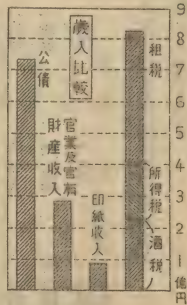 歳入比較
公債
官業及官有
財産収入
印紙収入
租税
所得税
酒税
9
8
7
6
5
4
3
2
1
億
円